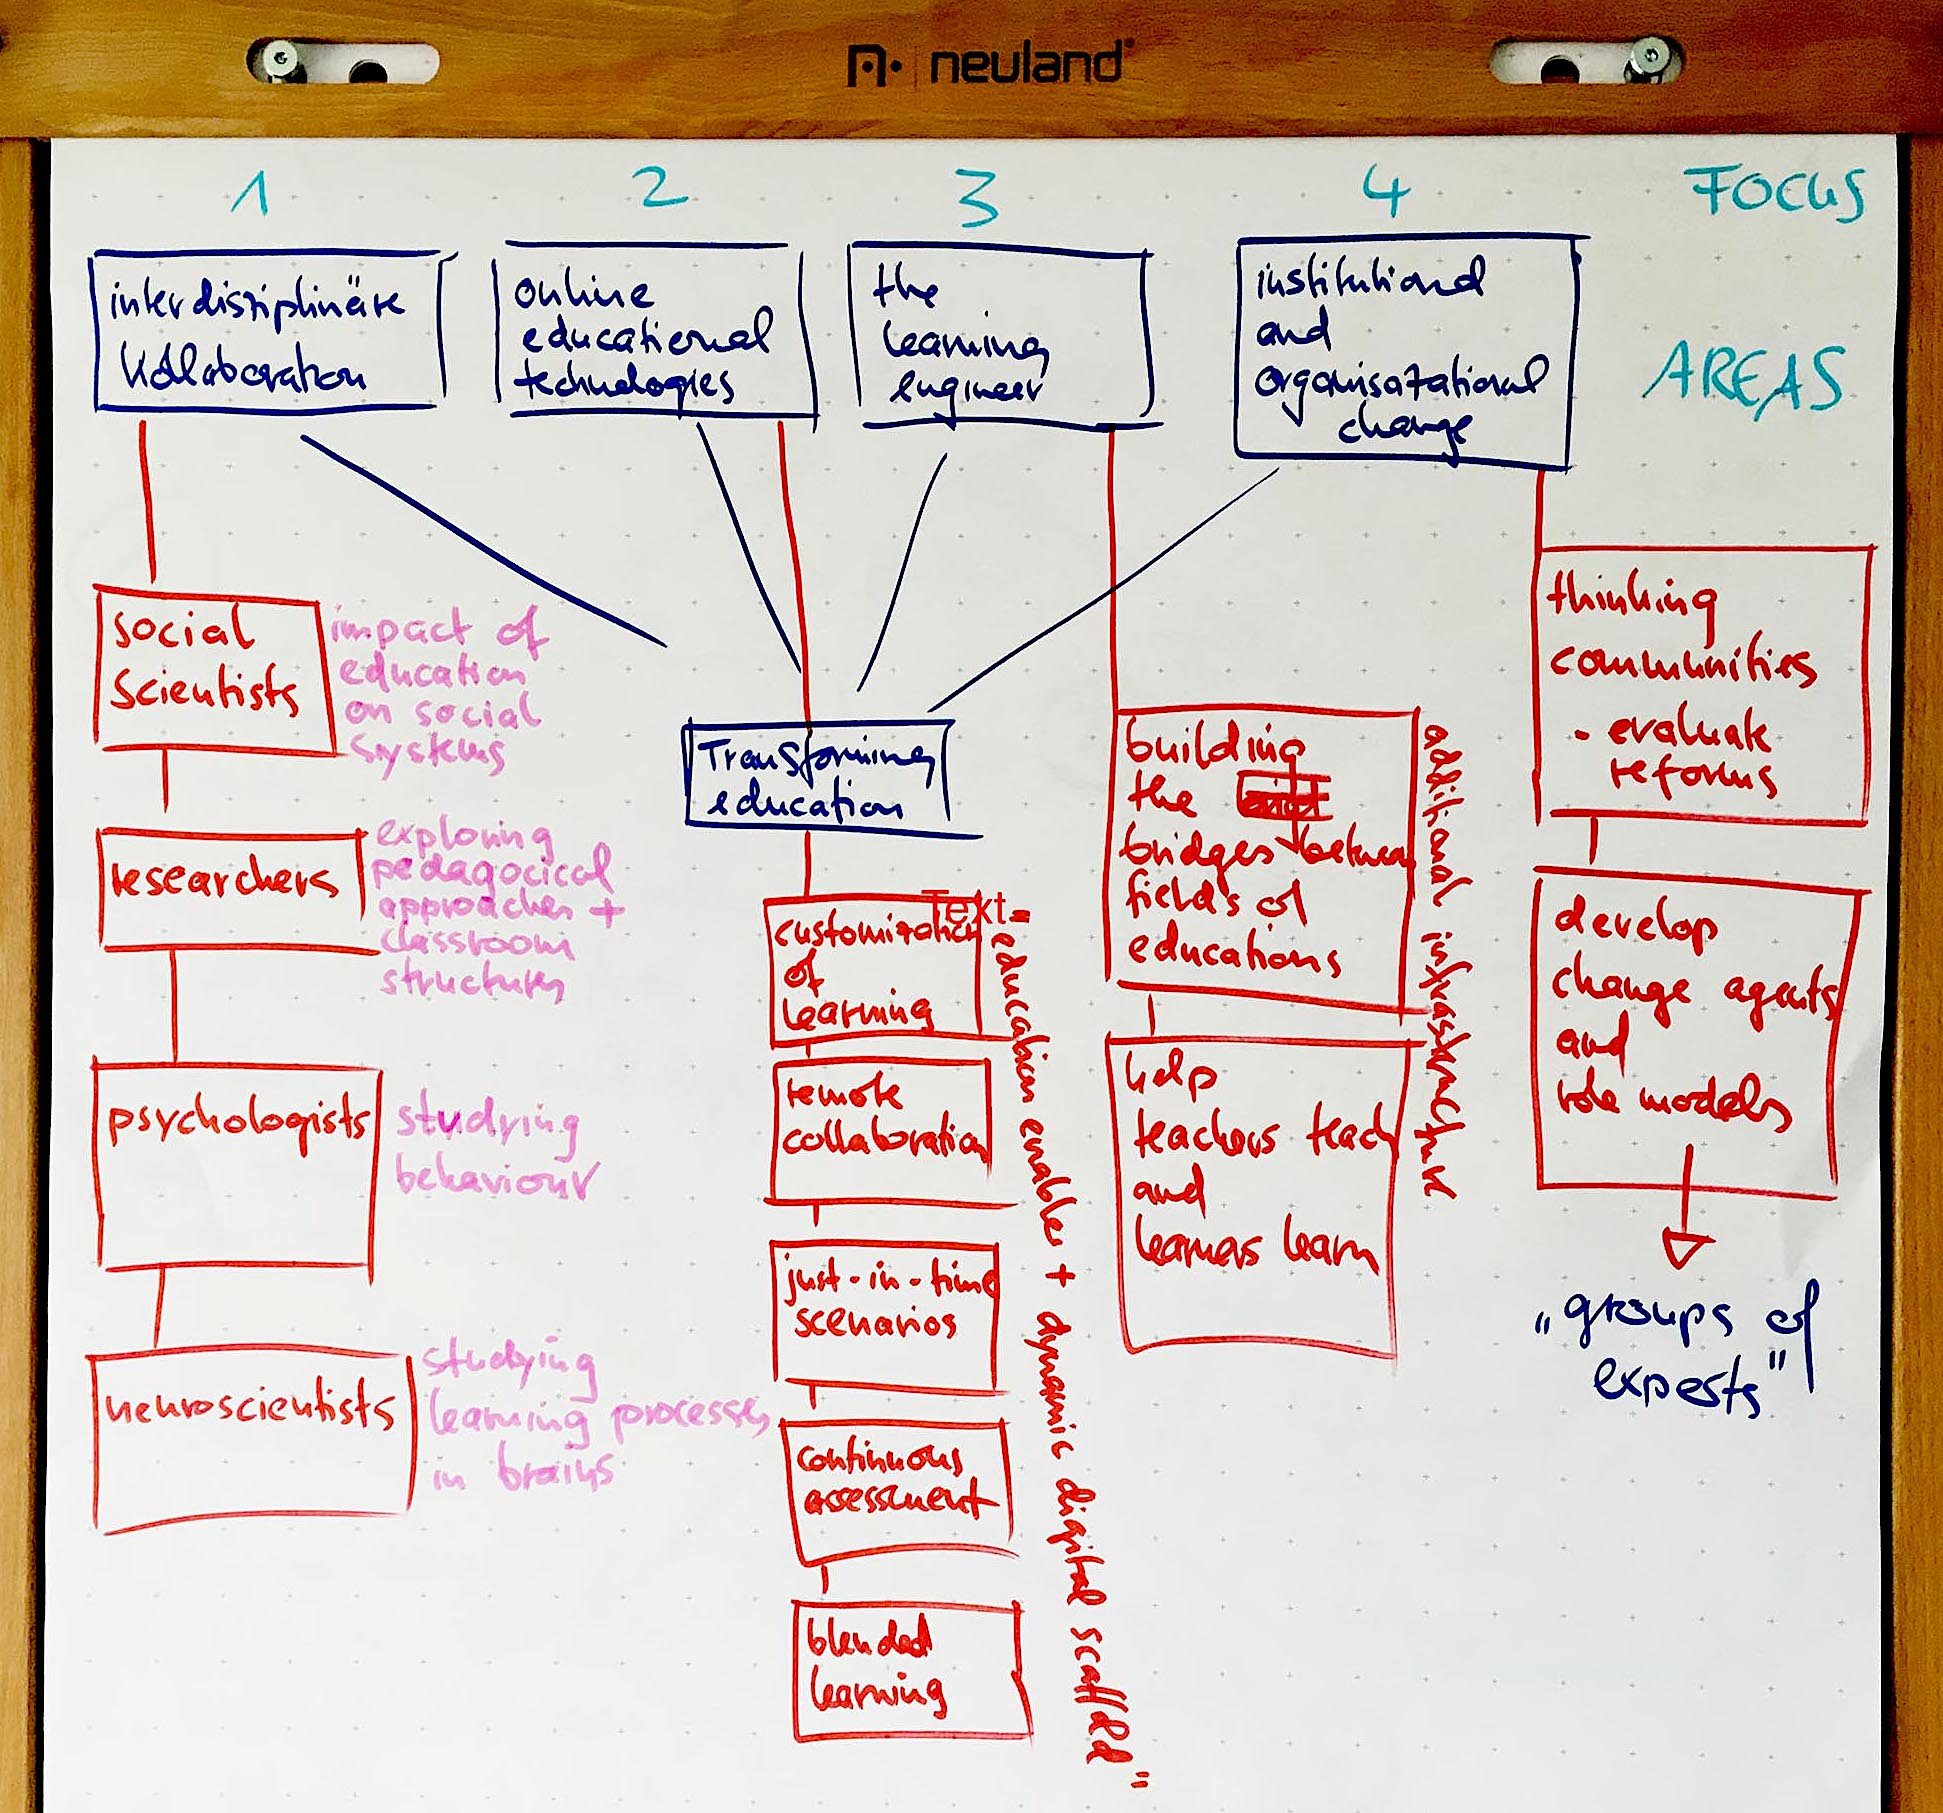 neuland
1 2 3 4 FOCUS
AREAS
interdisziplinäre
Kollaboration
online
educational
technologies
the
learning
engineer
institutional
and
organisatational
change
Transforming
education
social
Scientists
impact of
education
on social
systems
researchers
exploring
pedagocical
approaches +
classroom
structures
psychologists
studying
behaviour
neuroscientists
studying
learning processes
in brains
Text
customization
of
learning
remote
collaboration
just-in-time
scenarios
continuous
assessment
blended
learning
"education enabler + dynamic digital scaffold"
building
the
bridges between
fields of
educations
help
teachers teach
and
learners learn
additional infrastructure
thinking
communities
- evaluate
reforms
develop
change agents
and
role models
„groups of
experts"